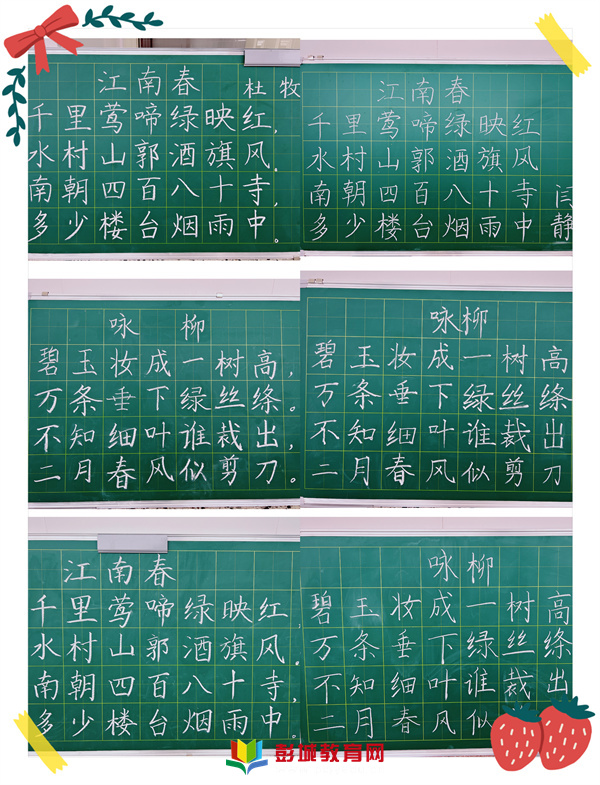 江南春 杜牧
千里莺啼绿映红，
水村山郭酒旗风。
南朝四百八十寺，
多少楼台烟雨中。
江南春
千里莺啼绿映红
水村山郭酒旗风
南朝四百八十寺
多少楼台烟雨中
闫静
咏柳
碧玉妆成一树高，
万条垂下绿丝绦。
不知细叶谁裁出，
二月春风似剪刀。
咏柳
碧玉妆成一树高
万条垂下绿丝绦
不知细叶谁裁出
二月春风似剪刀
江南春
千里莺啼绿映红，
水村山郭酒旗风。
南朝四百八十寺，
多少楼台烟雨中。
咏柳
碧玉妆成一树高
万条垂下绿丝绦
不知细叶谁裁出
二月春风似
彭城教育网